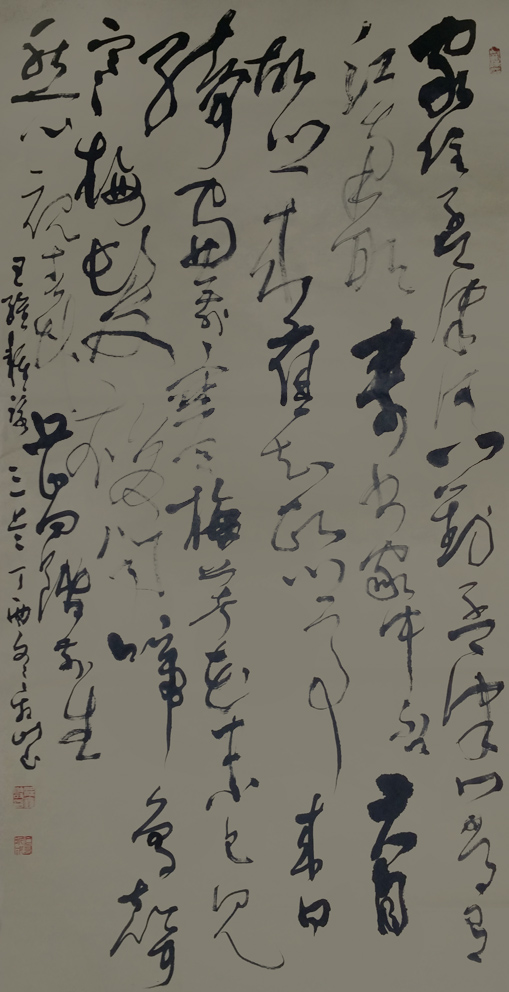 家住孟津河門對孟津口常有
江南船寄書家中否君自
故鄉来應知故鄉事来日
綺窗前寒梅著花未已見
寒梅發復聞啼鳥聲
愁心視春草畏向階前生
王維雜詩三首丁酉冬